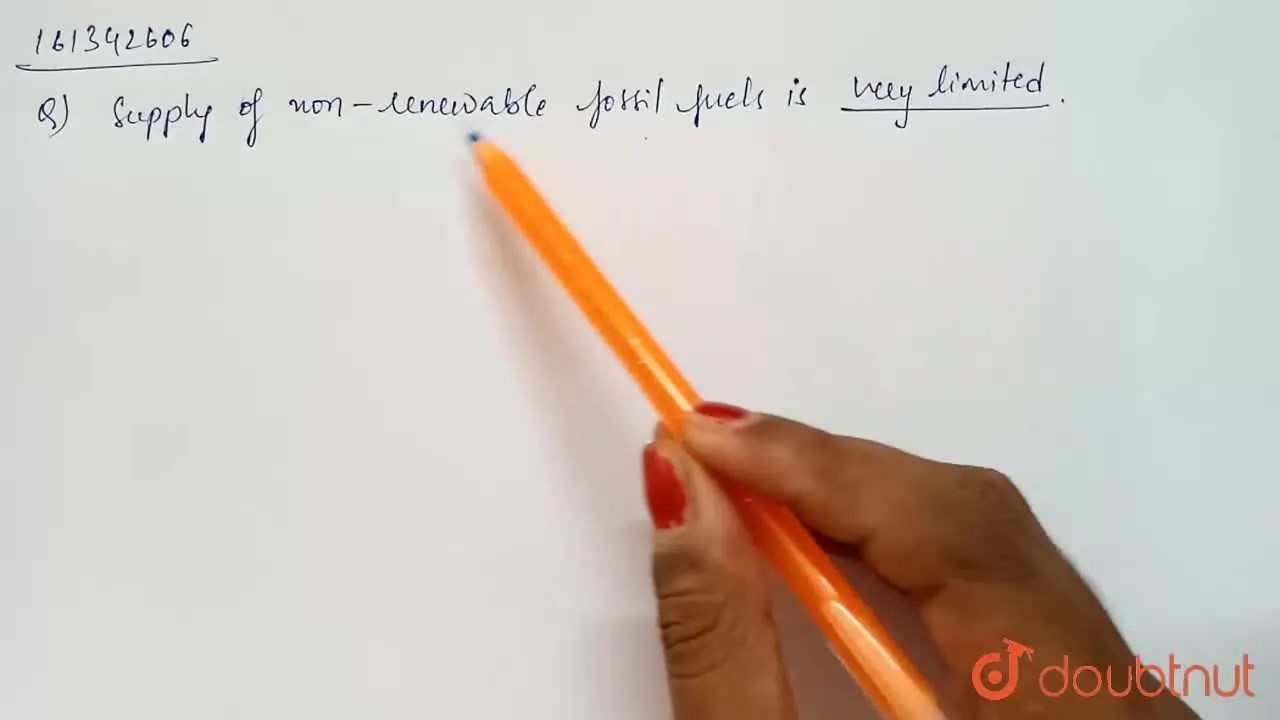 161342606
Q) Supply of non-renewable fossil fuels is very limited.
doubtnut